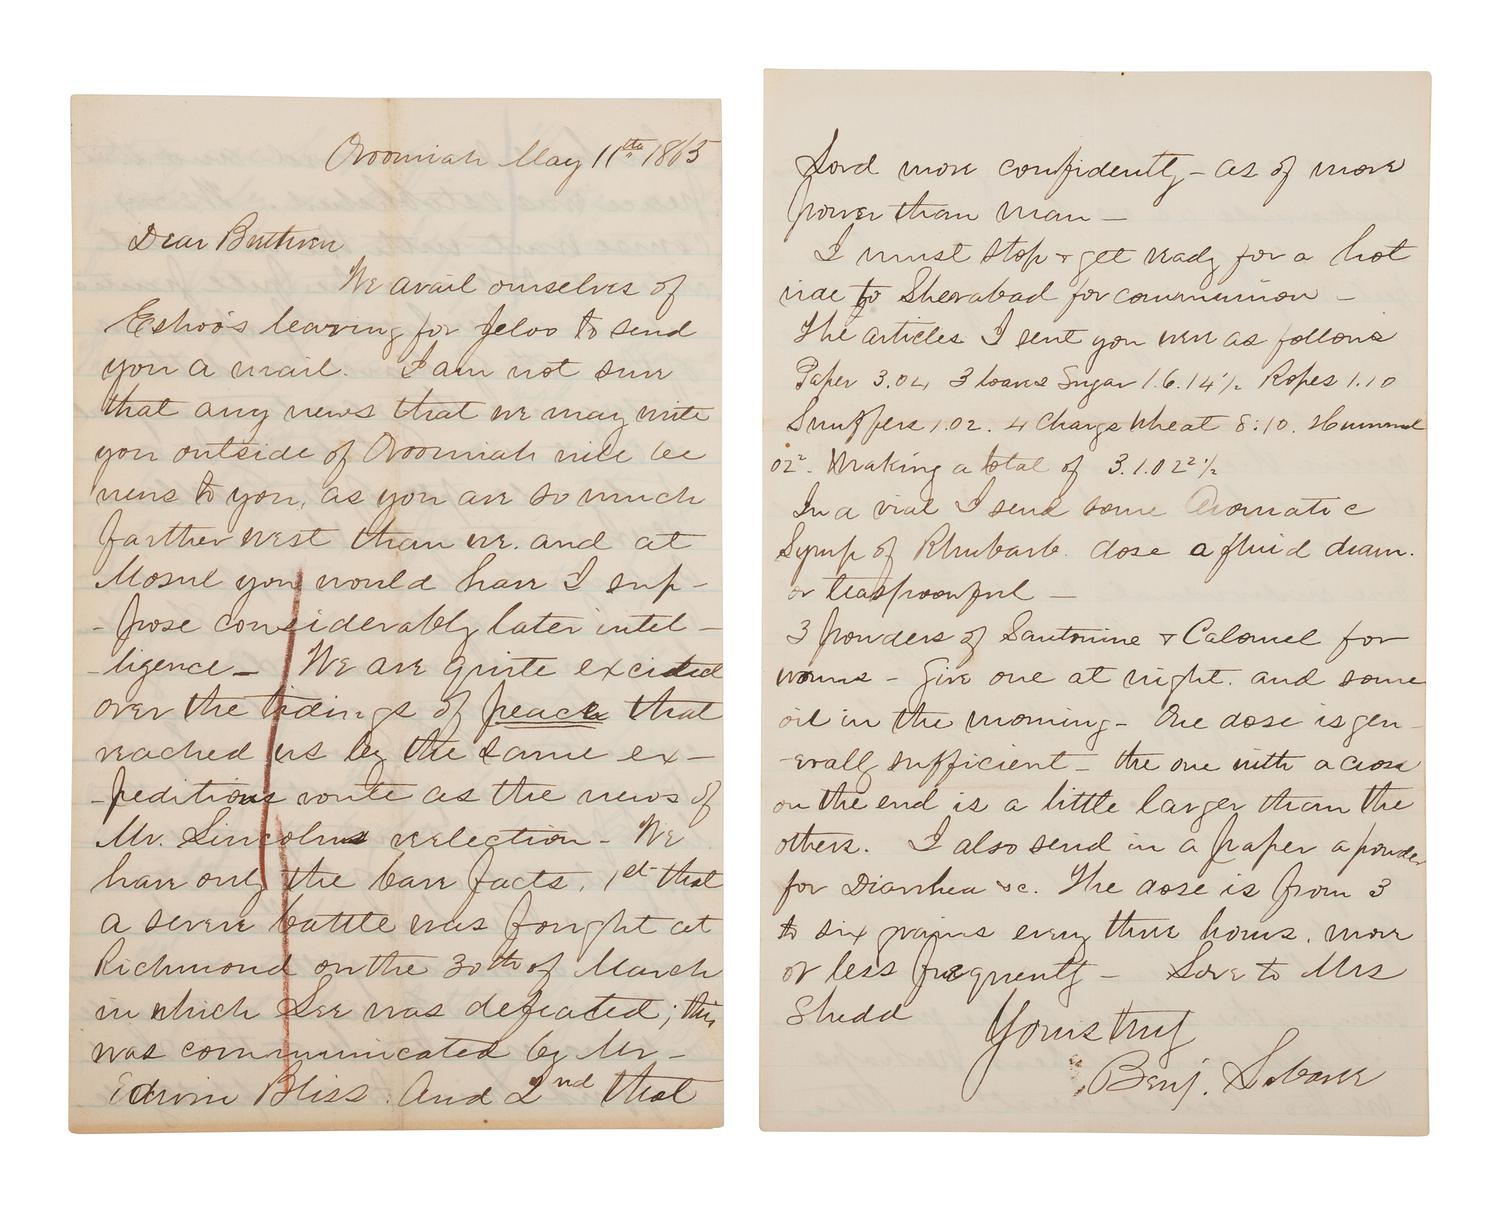 Oroomiah May 11th 1865
Dear Brethren
We avail ourselves of
Eshoo's leaving for Jeloo to send
you a mail. I am not sure
that any news that we may write
you outside of Oroomiah will be
news to you, as you are so much
farther west than we. and at
Mosul you would have I sup-
-pose considerably later intel-
-ligence - We are quite excited
over the tidings of peace that
reached us by the same ex-
-peditious route as the news of
Mr. Lincolns reelection - We
have only the bare facts, 1st that
a severe battle was fought at
Richmond on the 30th of March
in which Lee was defeated; this
was communicated by Mr -
Edwin Bliss. And 2nd that
Lord more confidently - as of more
power than man -
I must stop & get ready for a hot
ride to Sherabad for communion -
The articles I sent you were as follows
Paper 3.04 3 loaves Sugar 1.6.14½ Ropes 1.10
Snuffers 1.02. 4 Charge Wheat 8:10.
02². Making a total of 3.1.02²½
In a vial I send some Aromatic
Syrup of Rhubarb. dose a fluid dram.
or teaspoonful -
3 powders of Santonine & Calomel for
worms - Give one at night. and some
oil in the morning - One dose is gen-
-erally sufficient - the one with a cross
on the end is a little larger than the
others. I also send in a paper a powder
for Diarrhea &c. The dose is from 3
to six grains every three hours, more
or less frequently - Love to Mrs
Shedd
Yours truly
Benj. Labaree